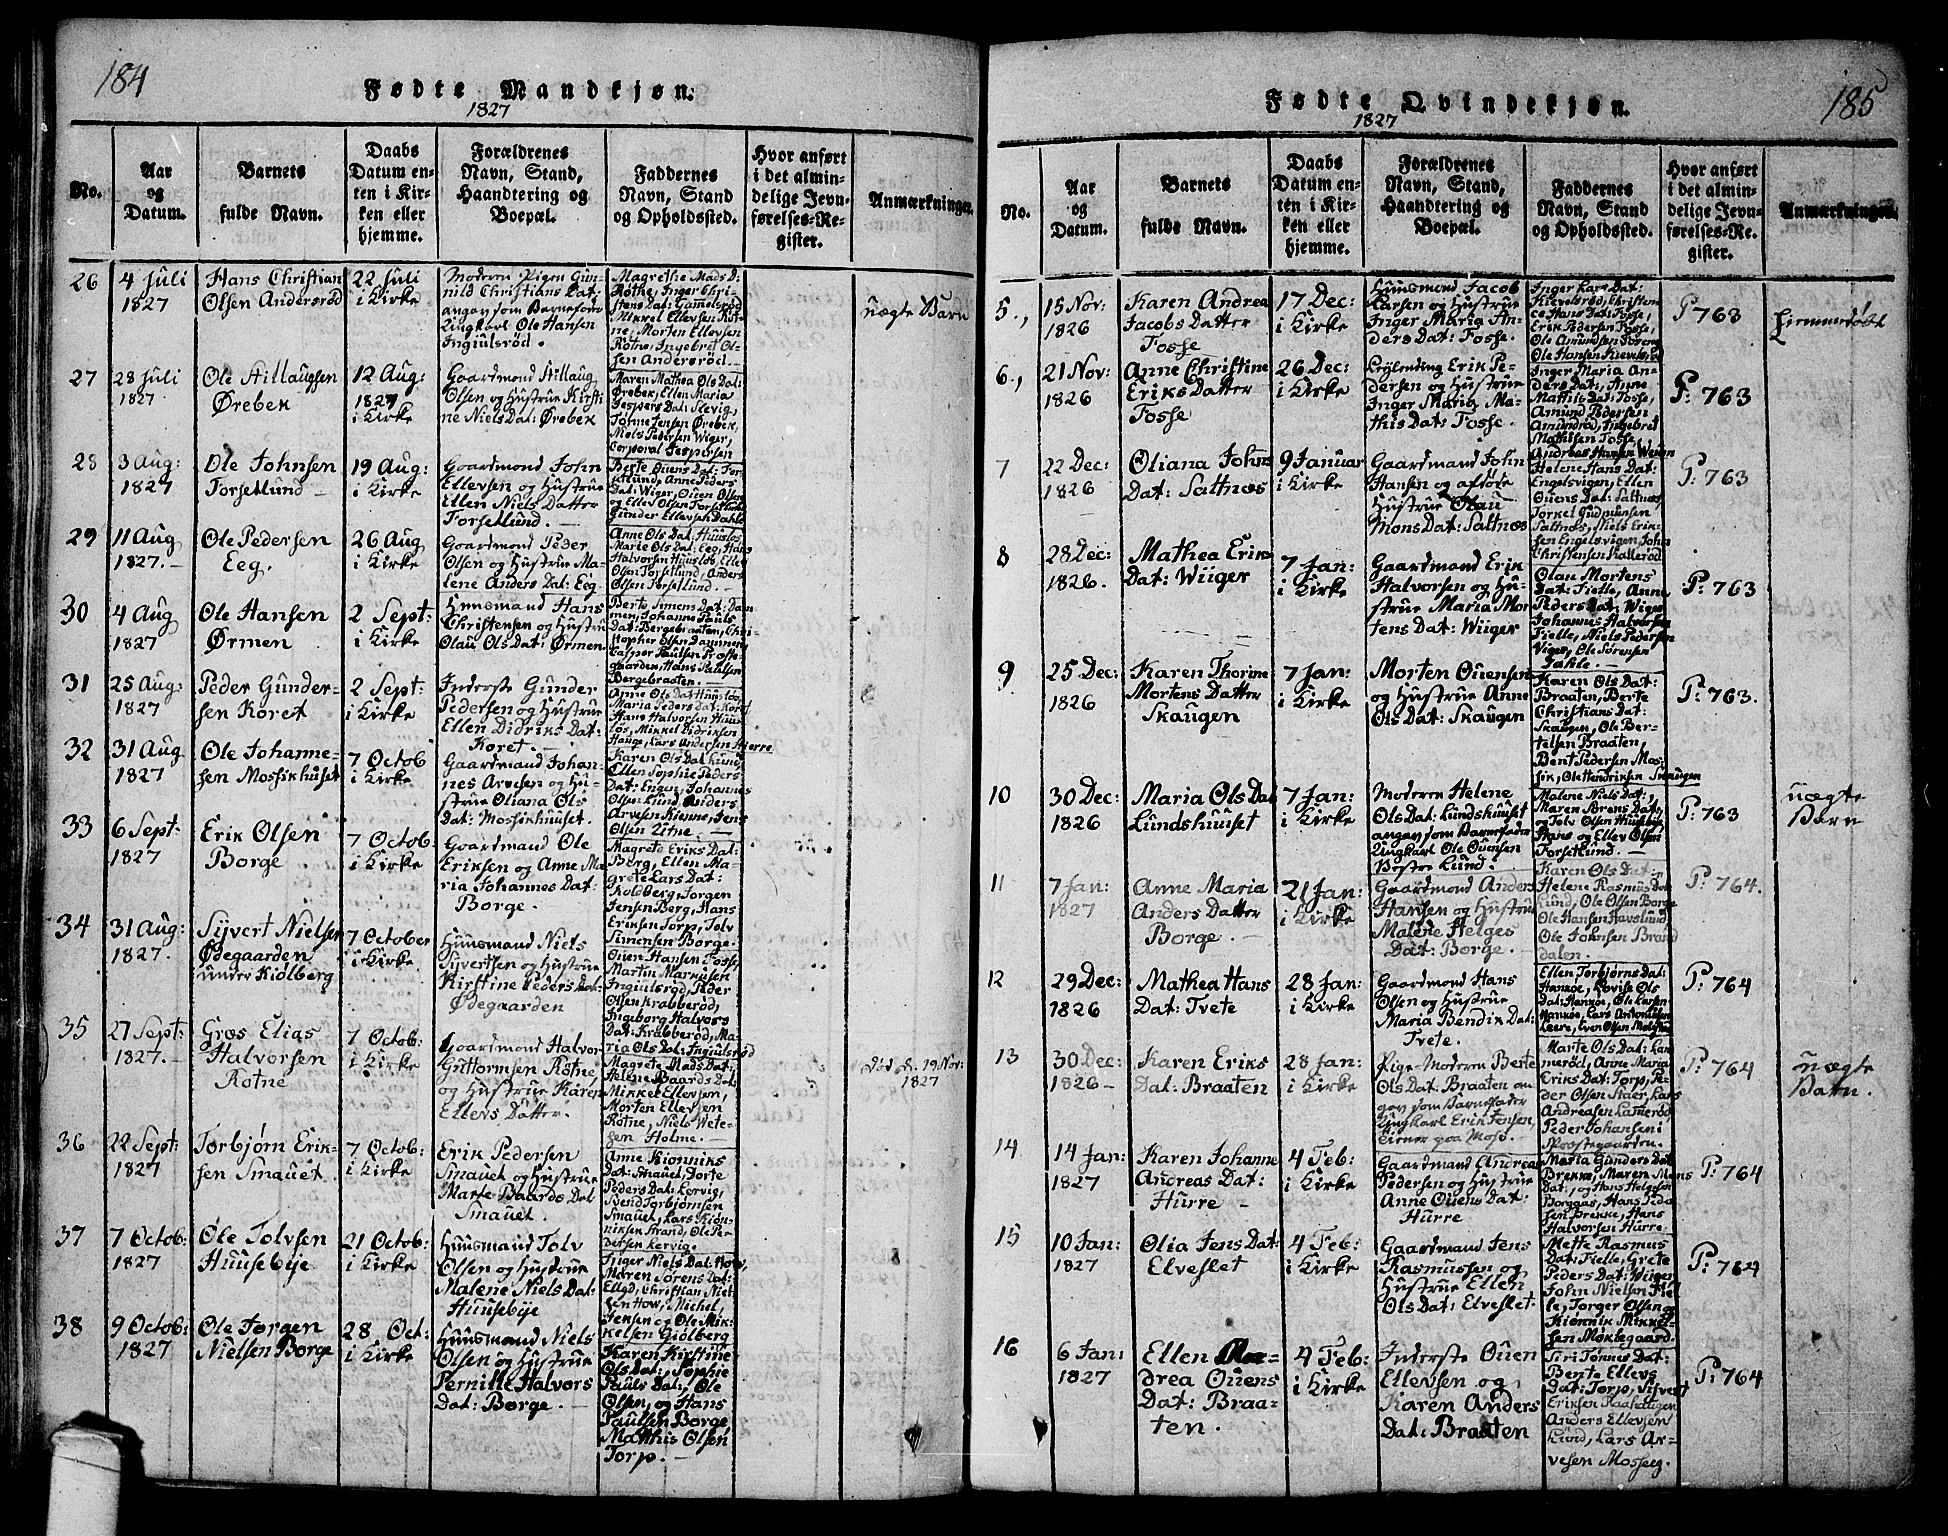 184
Fødte Mandkjøn.
1827
No.
Aar
og
Datum.
Barnets
fulde Navn.
Daabs
Datum en-
ten i Kir-
ken eller
hjemme.
Forældrenes
Navn, Stand,
Haandtering og
Boepæl.
Faddernes
Navn, Stand
og Opholdssted.
Hvor anført
i det almin-
delige Jevn-
førelses-Re-
gister.
Anmærkninger.
26
4 Juli
1827
Hans Christian
Olsen Andersrød
22 Juli
i Kirke
Moderen Pigen Gun
nild Christians Dat:
angav som Barnefader
Ungkarl Ole Hansen
Ingiulsrød.
Magrethe Mads D:
Røthe, Inger Chri-
stens Dat: Gamelsrød
Mikkel Ellevsen Røt-
ne, Morten Ellevsen
Røtne, Ingebret Ol-
sen Andersrød.
uægte Barn
27
28 Juli
1827
Ole Hillaugsen
Ørebek
12 Aug:
1827
i Kirke
Gaardmand Hillaug
Olsen og Hustrue Kirsti
ne Niels Dat: Ørebek
Maren Mathea Ols Dat:
Ørebek, Ellen Maria
Jespers Dat: Slevig,
Tønne Jensen Ørebek,
Niels Pedersen Wiger,
Corporal Jespersen
28
3 Aug:
1827
Ole Johnsen
Torsetlund
19 Aug:
i Kirke
Gaardmand John
Ellevsen og Hustrue
Ellen Niels Datter
Torsetlund.
Berte Ouens Dat: Tor
setlund, Anne Peders
Dat: Wiger, Ouen Olsen
og Ellev Olsen Torsetlund
Gunder Ellevsen Dahle
29
11 Aug
1827.
Ole Pedersen
Eeg.
26 Aug
i Kirke
Gaardmand Peder
Olsen og Hustrue Ma-
lene Anders Dat: Eeg.
Anne Ols Dat: Huusløs
Marie Ols Dat: Eeg, Hans
Halvorsen Huusløs, Ellev
Olsen Torsetlund, Anders
Olsen Torsetlund.
30
4 Aug
1827
Ole Hansen
Ørmen
2 Sept:
i Kirke
Huusmand Hans
Christensen og Hustru
Olau Ols Dat: Ørmen
Berte Simens Dat: Dam
men, Johanne Pauls
Dat: Bergebraaten, Chri-
stopher Olsen Dammen,
Casper Paulsen Præste
gaarden, Hans Paulsen
Bergebraaten.
31
25 Aug:
1827
Peder Gunder-
sen Koret
2 Sept:
i Kirke
Inderste Gunder
Pedersen og Hustrue
Ellen Didriks Dat:
Koret.
Anne Ols Dat Huusløs
Maria Peders Dat: Koret
Hans Halvorsen Huus
løs, Mikkel Didriksen
Hauge, Lars Andersen Hierre
32
31 Aug
1827
Ole Johanne-
sen Mossikhuset
7 Octob
i Kirke
Gaardmand Johan-
nes Arvesen og Hu-
strue Oliana Ols
Dat: Mossikhuuset.
Karen Ols Dat Lund,
Ellen Sophie Peders
Dat: Engen, Johannes
Olsen Lund, Anders
Arvesen Kienne, Jens
Olsen Utne.
33
6 Sept:
1827
Erik Olsen
Borge
7 Octob:
i Kirke
Gaardmand Ole
Eriksen og Anne Ma
ria Johannes Dat:
Borge.
Magrete Eriks Dat:
Borg, Ellen Ma-
grete Lars Dat:
Kolberg, Jørgen
Jensen Berg, Hans
Eriksen Torp, Tolv
Simensen Borge.
34
31 Aug:
1827.
Sijvert Nielsen
Ødegaarden
under Kiølberg
7 October
i Kirke
Huusmand Niels
Sijvertsen og Hustrue
Kirstine Peders Dat:
Ødegaarden
Ouen Hansen Fosse
Martin Markusen
Ingiulsrød, Peder
Olsen Krabberød,
Ingeborg Halvors
Dat: Krabberød, Ma-
ria Ols Dat: Ingiulsrød
35
27 Sept:
1827.
Gros Elias
Halvorsen
Røtne
7 Octob:
i Kirke
Gaardmand Halvor
Guttormsen Røtne,
og Hustrue Karen
Ellevs Datter.
Magrete Mads Dat:
Helene Baards Dat:
Mikkel Ellevsen,
Morten Ellevsen
Røtne, Niels Wete-
sen Holme.
Død d. 19 Nov:
1827
36
22 Sept:
1827
Torbjørn Erik-
sen Smauet
7 Octob:
i Kirke
Erik Pedersen
Smauet og Hustrue
Marte Baards Dat
Smauet.
Anne Kionniks
Dat: Smauet, Dorte
Peders Dat: Lervig,
Svend Torbjørnsen
Smauet, Lars Kiøn-
niksen Strand, Ole Pe-
dersen Lervig.
37
7 Octob:
1827
Ole Tolvsen
Huusebye
21 Octob:
i Kirke
Huusmand Tolv
Olsen og Hustrue
Malene Niels Dat:
Huusebye
Inger Niels Dat: How,
Maren Sørens Dat:
Ellgd, Christian Niel
sen How, Michel
Jensen og Ole Mik-
kelsen Giölberg
38
9 Octob:
1827
Ole Jørgen
Nielsen Borge
28 Oct:
i Kirke
Huusmand Niels
Olsen og Hustrue
Pernille Halvors
Dat: Borge
Karen Kirstine
Ols Dat:, Sophie
Pauls Dat:, Ole
Olsen, og Hans
Paulsen Borge
Matthis Olsen
Torp.
185
Fødte Qvindekjøn.
1827
No.
Aar
og
Datum.
Barnets
fulde Navn.
Daabs
Datum en-
ten i Kir-
ken eller
hjemme.
Forældrenes
Navn, Stand,
Haandtering og
Boepæl.
Faddernes
Navn, Stand
og Opholdssted.
Hvor anført
i det almin-
delige Jevn-
førelses-Re-
gister.
Anmærkninger.
5.,
15 Nov:
1826
Karen Andrea
Jacobs Datter
Fosse
17 Dec:
i Kirke
Huusmand Jacob
Larsen og Hustrue
Inger Maria An-
ders Dat: Fosse.
Inger Lars Dat:
Kievelsrød, Christen
ce Hans Dat: Fosse,
Erik Pedersen Fosse,
Ole Amundsen
Ole Hansen Kievelsrød
P 763
Hiemmedøbt
6.,
21 Nov:
1826
Anne Christine
Eriks Datter
Fosse
26 Dec:
i Kirke
Leylending Erik Pe-
dersen og Hustrue
Inger Maria Ma-
this Dat: Fosse.
Inger Maria An-
ders Dat:, Anne
Mathis Dat: Fosse,
Amund Pedersen
Amundrød, Ingebret
Mathisen Fosse,
P: 763
7
22 Dec:
1826
Oliana Johns
Dat: Saltnøs
9 Januar
i Kirke
Gaardmand John
Hansen og afløde
Hustrue Olau
Mons Dat: Saltnøs
Andreas Hansen Weigen
Helene Hans Dat:
Engelsvigen, Ellen
Ouens Dat: Saltnøs,
Torkel Gudmunsen
Saltnøs, Niels Erik-
sen Engelsvigen, John
Christensen Kallerød
P: 763
8
28 Dec:
1826.
Mathea Eriks
Dat: Wiiger
7 Jan:
i Kirke
Gaardmand Erik
Halvorsen og Hu-
strue Maria Mor
tens Dat: Wiiger
Olau Mortens
Dat: Fielle, Anne
Peders Dat: Wiger
Johannis Halvorsen
Fielle, Niels Pedersen
Viger, Ole Sørensen
Dahle.
P: 763
9
25 Dec:
1826
Karen Thorine
Mortens Datter
Skaugen
7 Jan:
i Kirke
Morten Ouensen
og Hustrue Anne
Ols Dat: Skaugen
Karen Ols Dat:
Braaten, Berte
Christians Dat:
Skaugen, Ole Ber-
telsen Braaten,
Bent Pedersen Mos-
sik, Ole Hendriksen Skaugen
P: 763.
10
30 Dec:
1826
Maria Ols Dat
Lundshuuset
7 Jan:
i Kirke
Moderen Helene
Ols Dat: Lundshuuset
angav som Barnefader
Ungkarl Ole Ouensen
Bøster Lund.
Malene Niels Dat:,
Maren Brens Dat,
og Tolv Olsen Huusebye
Hans og Ellev Olsen
Torsetlund.
P: 763
uægte
Barn
11
7 Jan:
1827
Anne Maria
Anders Datter
Borge
21 Jan:
i Kirke
Gaardmand Anders
Hansen og Hustrue
Malene Helges
Dat: Borge.
Karen Ols Dat in
Helene Rasmus Dat
Lund, Ole Olsen Borge
Ole Hansen Havslund
Ole Johnsen Brand
dalen.
P: 764.
12
29 Dec:
1826
Mathea Hans
Dat: Tvete
28 Jan:
i Kirke
Gaardmand Hans
Olsen og Hustrue
Maria Bendik Dat:
Tvete.
Ellen Torbjørns Dat:
Hankøe, Lovise Ols
Dat: Hankøe, Ole Larsen
Hankøe, Lars Antonissen
Leere, Even Olsen
P: 764
13
30 Dec:
1826
Karen Eriks
Dat: Braaten
28 Jan:
i Kirke
Pige Moderen Berte
Ols Dat: Braaten an
gav som Barnefader
Ungkarl Erik Jensen,
tiener paa Moss.
Marte Ols Dat: Lam
merød, Anne Maria
Eriks Dat: Torp, Pe-
der Olsen Staer, Lars
Andreasen Lamerød,
Peder Johansen i
Præstegaarden.
P: 764
uægte
Barn.
14
14 Jan:
1827
Karen Johanne
Andreas Dat:
Hurre
4 Feb:
i Kirke
Gaardmand Andreas
Pedersen og Hustrue
Anne Ouens Dat:
Hurre
Maria Gunders Dat
Brekke, Maren Mons
Dat:, og Hans Helgesen
Borgaas, Hans Peder
sen Brekke, Hans
Halvorsen Hurre,
P: 764
15
10 Jan:
1827
Olia Jens Dat:
Elveslet
4 Feb:
i Kirke
Gaardmand Jens
Rasmussen og
Hustrue Ellen
Ols Dat: Elveslet.
Mette Rasmus
Dat: Fielle, Grete
Peders Dat: Wiiger
John Nielsen Fiel-
le, Torger Olsen og
Kiønnik Mikkel-
sen Møklegaard.
P: 764
16
6 Jan:
1827
Ellen An-
drea Ouens
Dat: Braa-
ten.
4 Feb:
i Kirke
Inderste Ouen
Ellevsen og
Karen Anders
Dat: Braaten
Siri Tønnes Dat:
Bente Ellevs
Dat: Torp, Sijvert
Eriksen Raahaugen
Anders Ellevsen
Lund, Lars Ar-
vesen Mosseeg.
P: 764